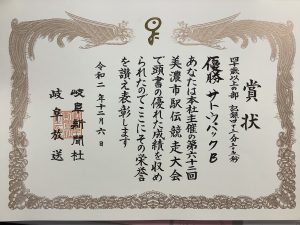 賞状
四十歳以上の部
優勝 サトウパック B
あなたは本社主催の第六十二回
美濃市駅伝競走大会
で頭書の優れた成績を収め
られたのでここにその栄誉
を讃え表彰します
令和二年十二月六日
岐阜新聞社
岐阜放送